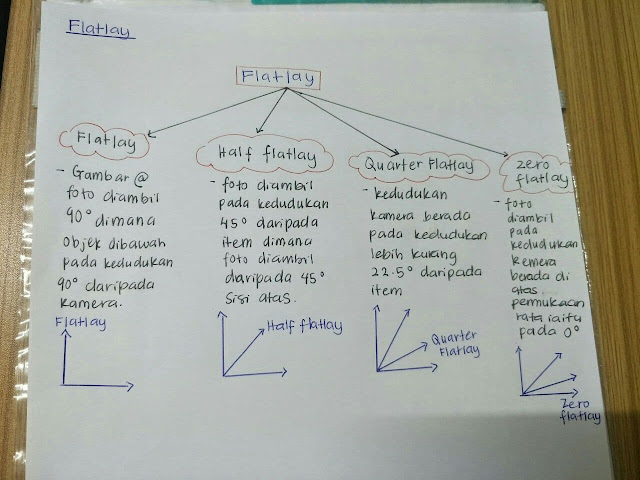 Flatlay
Flatlay
Flatlay
- Gambar @
foto diambil
90° dimana
objek dibawah
pada kedudukan
90° daripada
kamera.
Flatlay
Half flatlay
- foto diambil
pada kedudukan
45° daripada
item dimana
foto diambil
daripada 45°
sisi atas.
Half flatlay
Quarter Flatlay
- kedudukan
kamera berada
pada kedudukan
lebih kurang
22.5° daripada
item
Quarter
Flatlay
zero
flatlay
- foto
diambil
pada
kedudukan
kemera
berada di
atas
permukaan
rata iaitu
pada 0°
Zero
flatlay